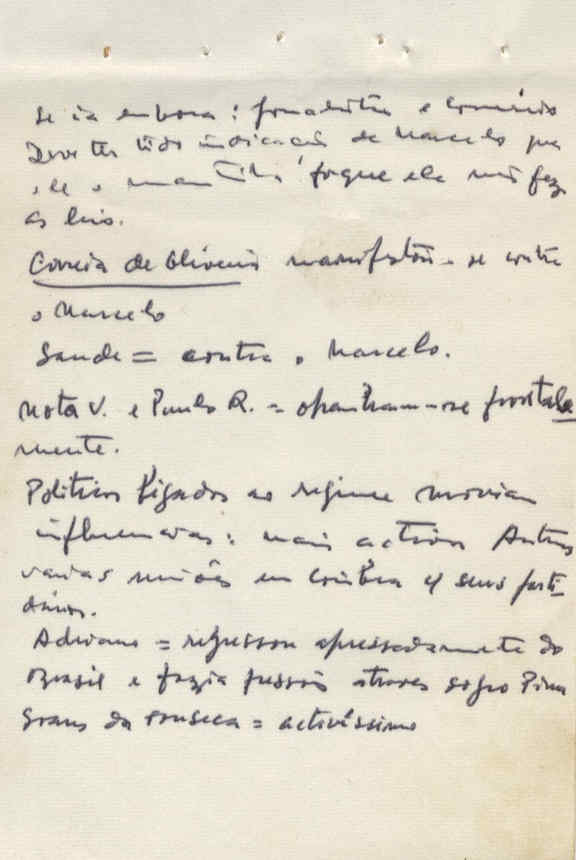 se ia embora: jornalistas e comércio
Deve ter tido indicação de Marcelo que
ele o mantinha, porque ele não fez
as leis.
Correia de Oliveira manifestou-se contra
o Marcelo
Sande = contra o Marcelo.
Mota V. e Paulo R. = opunham-se frontal
mente.
Políticos ligados ao regime moviam
influências: mais activos Antunes
várias reuniões em Coimbra c/ seus parti-
dários.
Adriano = regressou apressadamente do
Brasil e fazia pressões através sogro
Graus da Fonseca = activíssimo